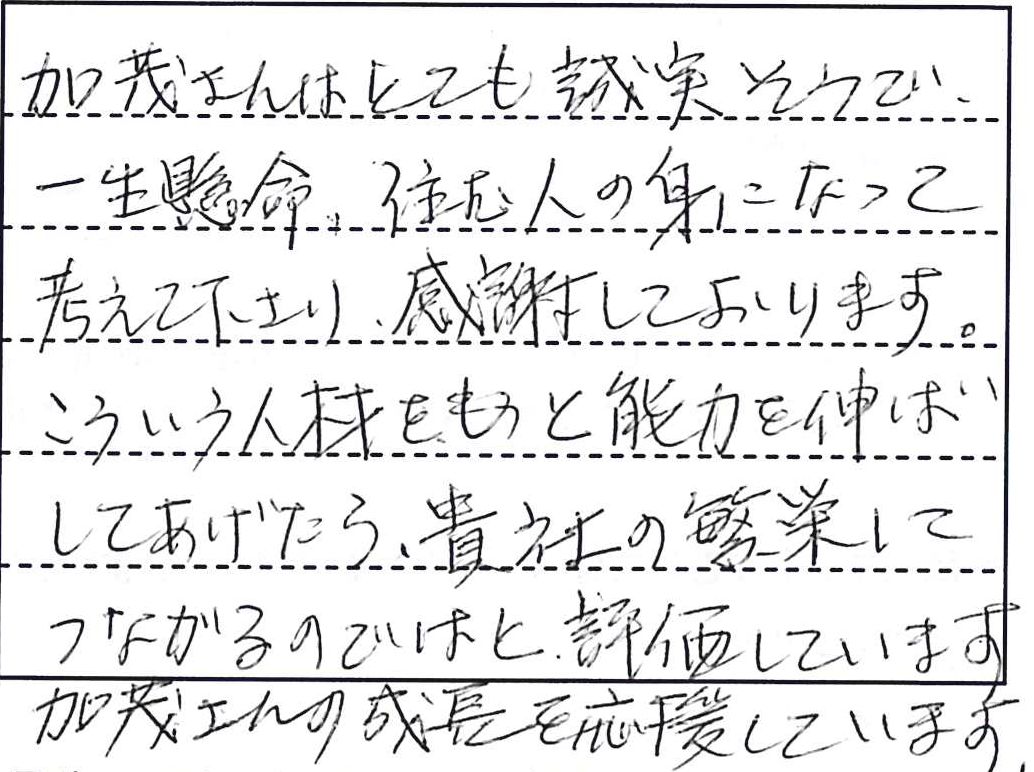 加茂さんはとても誠実そうで、
一生懸命、住む人の身になって
考えて下さり、感謝しております。
こういう人材をもっと能力を伸ば
してあげたら、貴社の繁栄にて
つながるのではと、評価しています
加茂さんの成長を応援しています